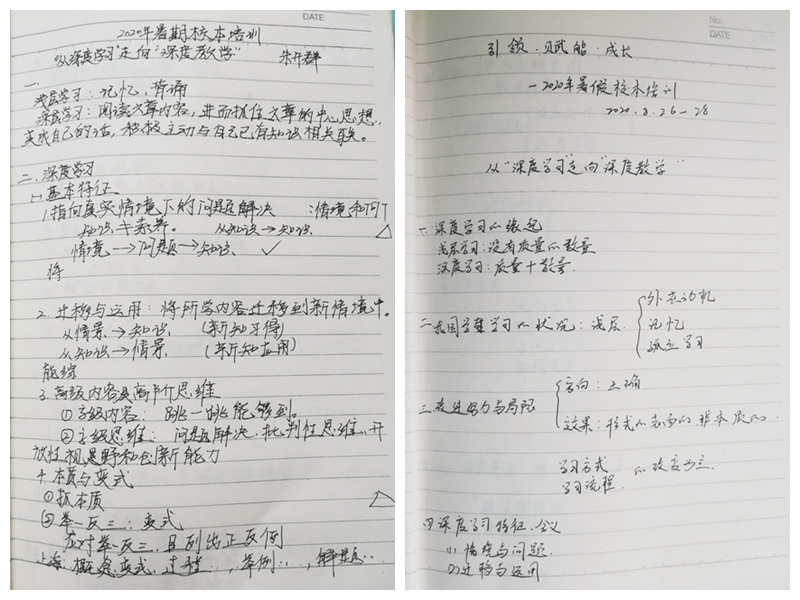 DATE
2020年暑期校本培训
"从深度学习"走向"深度教学" 朱开群
一、
浅层学习：记忆、背诵
深层学习：阅读文章内容，进而抓住文章的中心思想，
变成自己的话，积极主动与自己已有知识相关联。
二、深度学习
(一)基本特征
1.指向真实情境下的问题解决 ：情境和
知识≠素养。 从知识→知识、 △
情境→问题→知识、 ✓
将
2.迁移与运用：将所学内容迁移到新情境中。
从情景→知识、 (新知习得)
从知识→情景、 (新知应用)
能综
3.高级内容及高阶思维
①高级内容： 跳一跳能够到。
②高级思维： 问题解决、批判性思维、开
放性视野和创新能力
4.本质与变式
①抓本质 △
②举一反三：变式
应对举一反三，且列出正反例
上海：概念变式，过程‥，举例‥，解题‥
No.
DATE
引领·赋能·成长
—2020年暑假校本培训
2020.8.26-28
从"深度学习"走向"深度教学"
一、深度学习的缘起
浅层学习：没有质量的数量
深度学习：质量+数量.
二、我国学生学习的状况：浅层
外在动机
记忆
孤立学习
三、改进努力与局限
方向：正确
效果：形式的、表面的、非本质的.
学习方式
学习流程 的改变为主.
四、深度学习特征、含义
(1)情境与问题.
(2)迁移与运用